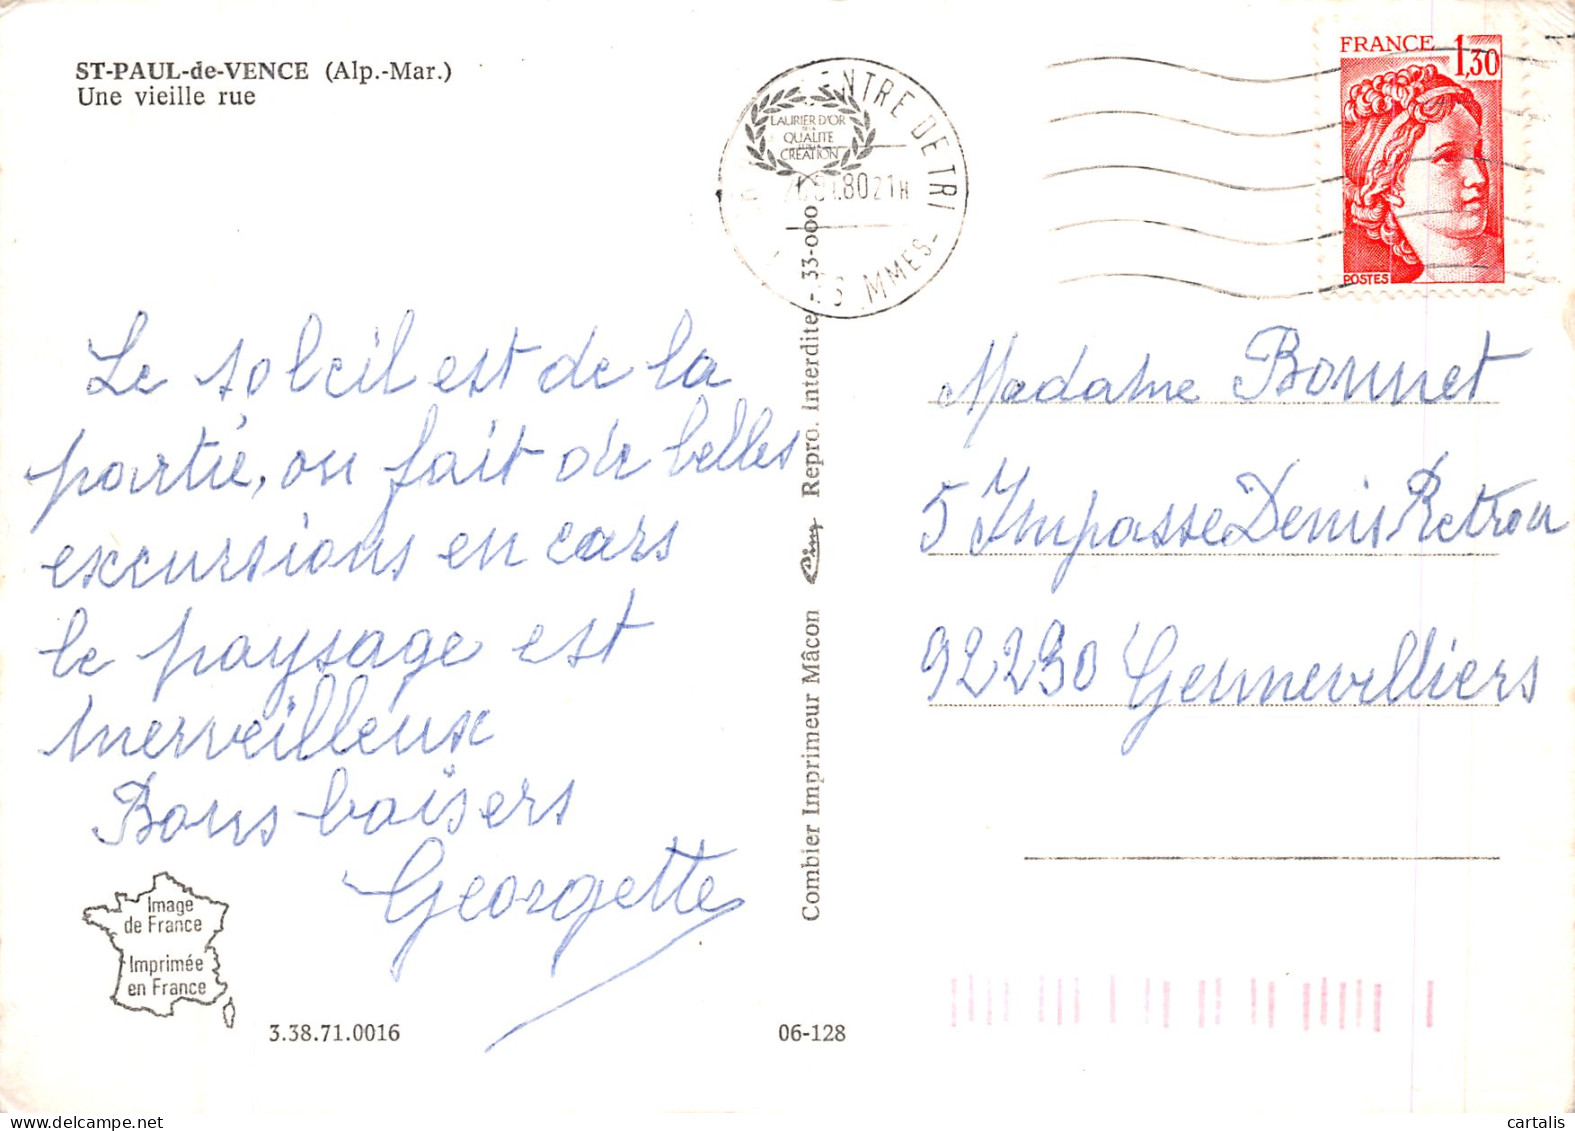 ST-PAUL-de-VENCE (Alp.-Mar.)
Une vieille rue
Le soleil est de la
partie, on fait de belles
excursions en cars
le paysage est
merveilleux
Bons baisers
Georgette
Image
de France
Imprimée
en France
3.38.71.0016
06-128
Combier Imprimeur Mâcon
Repro. Interdite - 33-000
LAURIER D'OR
DE LA
QUALITE
CREATION
CENTRE DE TRI
80 21H
FRANCE 1,30
POSTES
Madame Bonnet
5 Impasse Denis Retrou
92230 Gennevilliers
cartalis